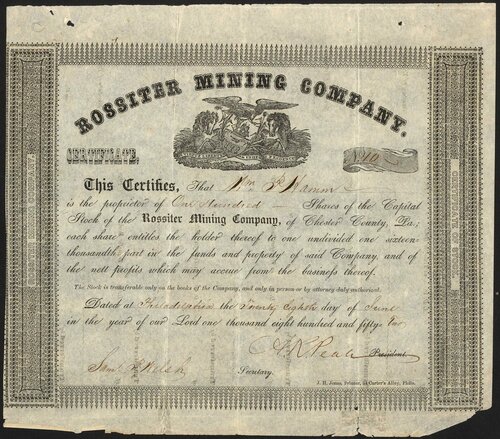 ROSSITER MINING COMPANY.
CERTIFICATE.
No. 10
This Certifies, That Wm
is the proprietor of One Hundred Shares of the Capital
Stock of the Rossiter Mining Company, of Chester County, Pa;
each share entitles the holder thereof to one undivided one sixteen
thousandth part in the funds and property of said Company, and of
the nett profits which may accrue from the business thereof.
The Stock is transferable only on the books of the Company, and only in person or by attorney duly authorized.
Dated at Philadelphia the Twenty Eighth day of June
in the year of our Lord one thousand eight hundred and fifty two
President
Secretary.
J. H. Jones, Printer, Carter's Alley, Phila.